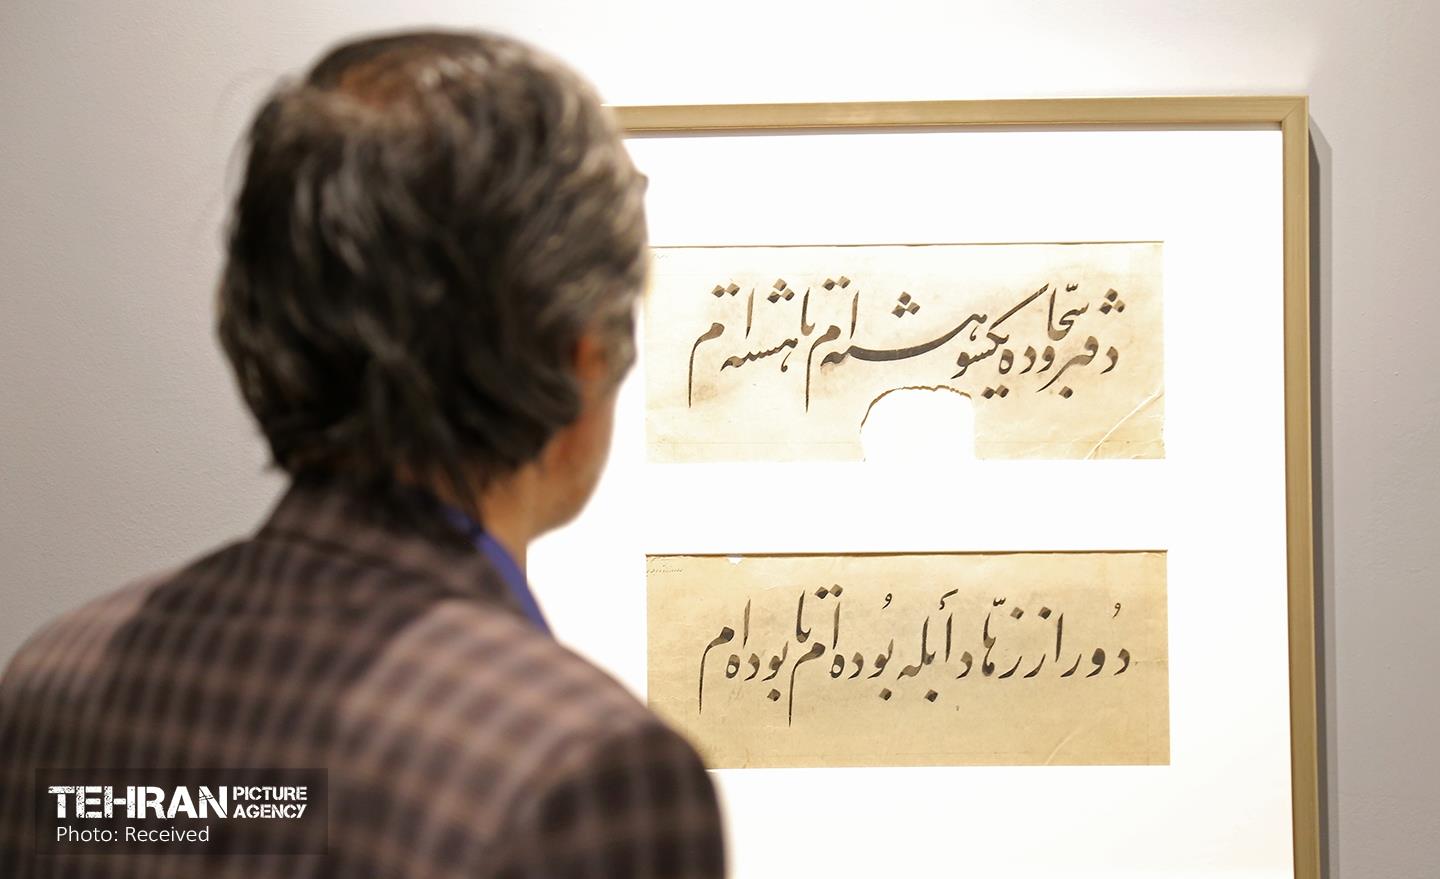 دفتر و سجّاده یکسو هشته ام تا هشته ام
دُور از زهّاد أبله بُوده ام تا بوده ام
TEHRAN PICTURE AGENCY
Photo: Received